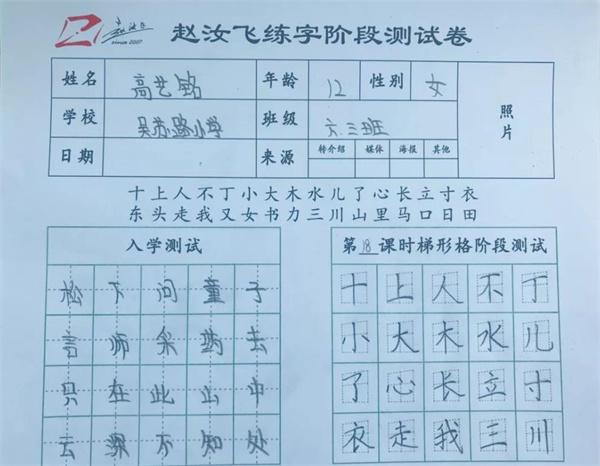 赵汝飞 since 2007 赵汝飞练字阶段测试卷
姓名 高艺铭 年龄 12 性别 女 照片
学校 吴苏路小学 班级 六.三班
日期 来源 转介绍 媒体 海报 其他
十上人不丁小大木水儿了心长立寸衣
东头走我又女书力三川山里马口日田
入学测试
松下问童子
言师采药去
只在此山中
云深不知处
第18课时梯形格阶段测试
十上人不丁
小大木水儿
了心长立寸
衣走我三川